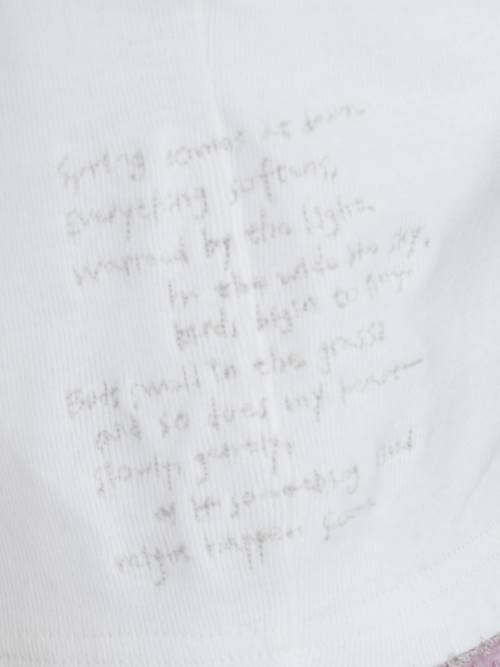 Spring comes at
Everything softens,
warmed by the light.
In the wide the sky,
birds begin to
Buds small in the grass
and so does my heart—
slowly, gently,
as if something
might happen soon